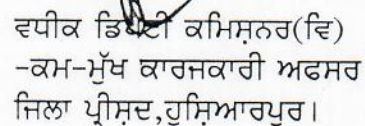 ਵਧੀਕ ਡਿਪਟੀ ਕਮਿਸ਼ਨਰ(ਵਿ)
-ਕਮ-ਮੁੱਖ ਕਾਰਜਕਾਰੀ ਅਫਸਰ
ਜਿਲਾ ਪ੍ਰੀਸ਼ਦ,ਹੁਸ਼ਿਆਰਪੁਰ।